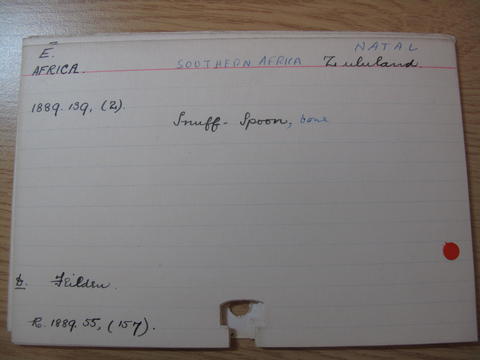 E.
NATAL
AFRICA. SOUTHERN AFRICA Zululand.
1889.139, (2).
Snuff-Spoon, bone
D. Feilden.
R. 1889.55, (157).